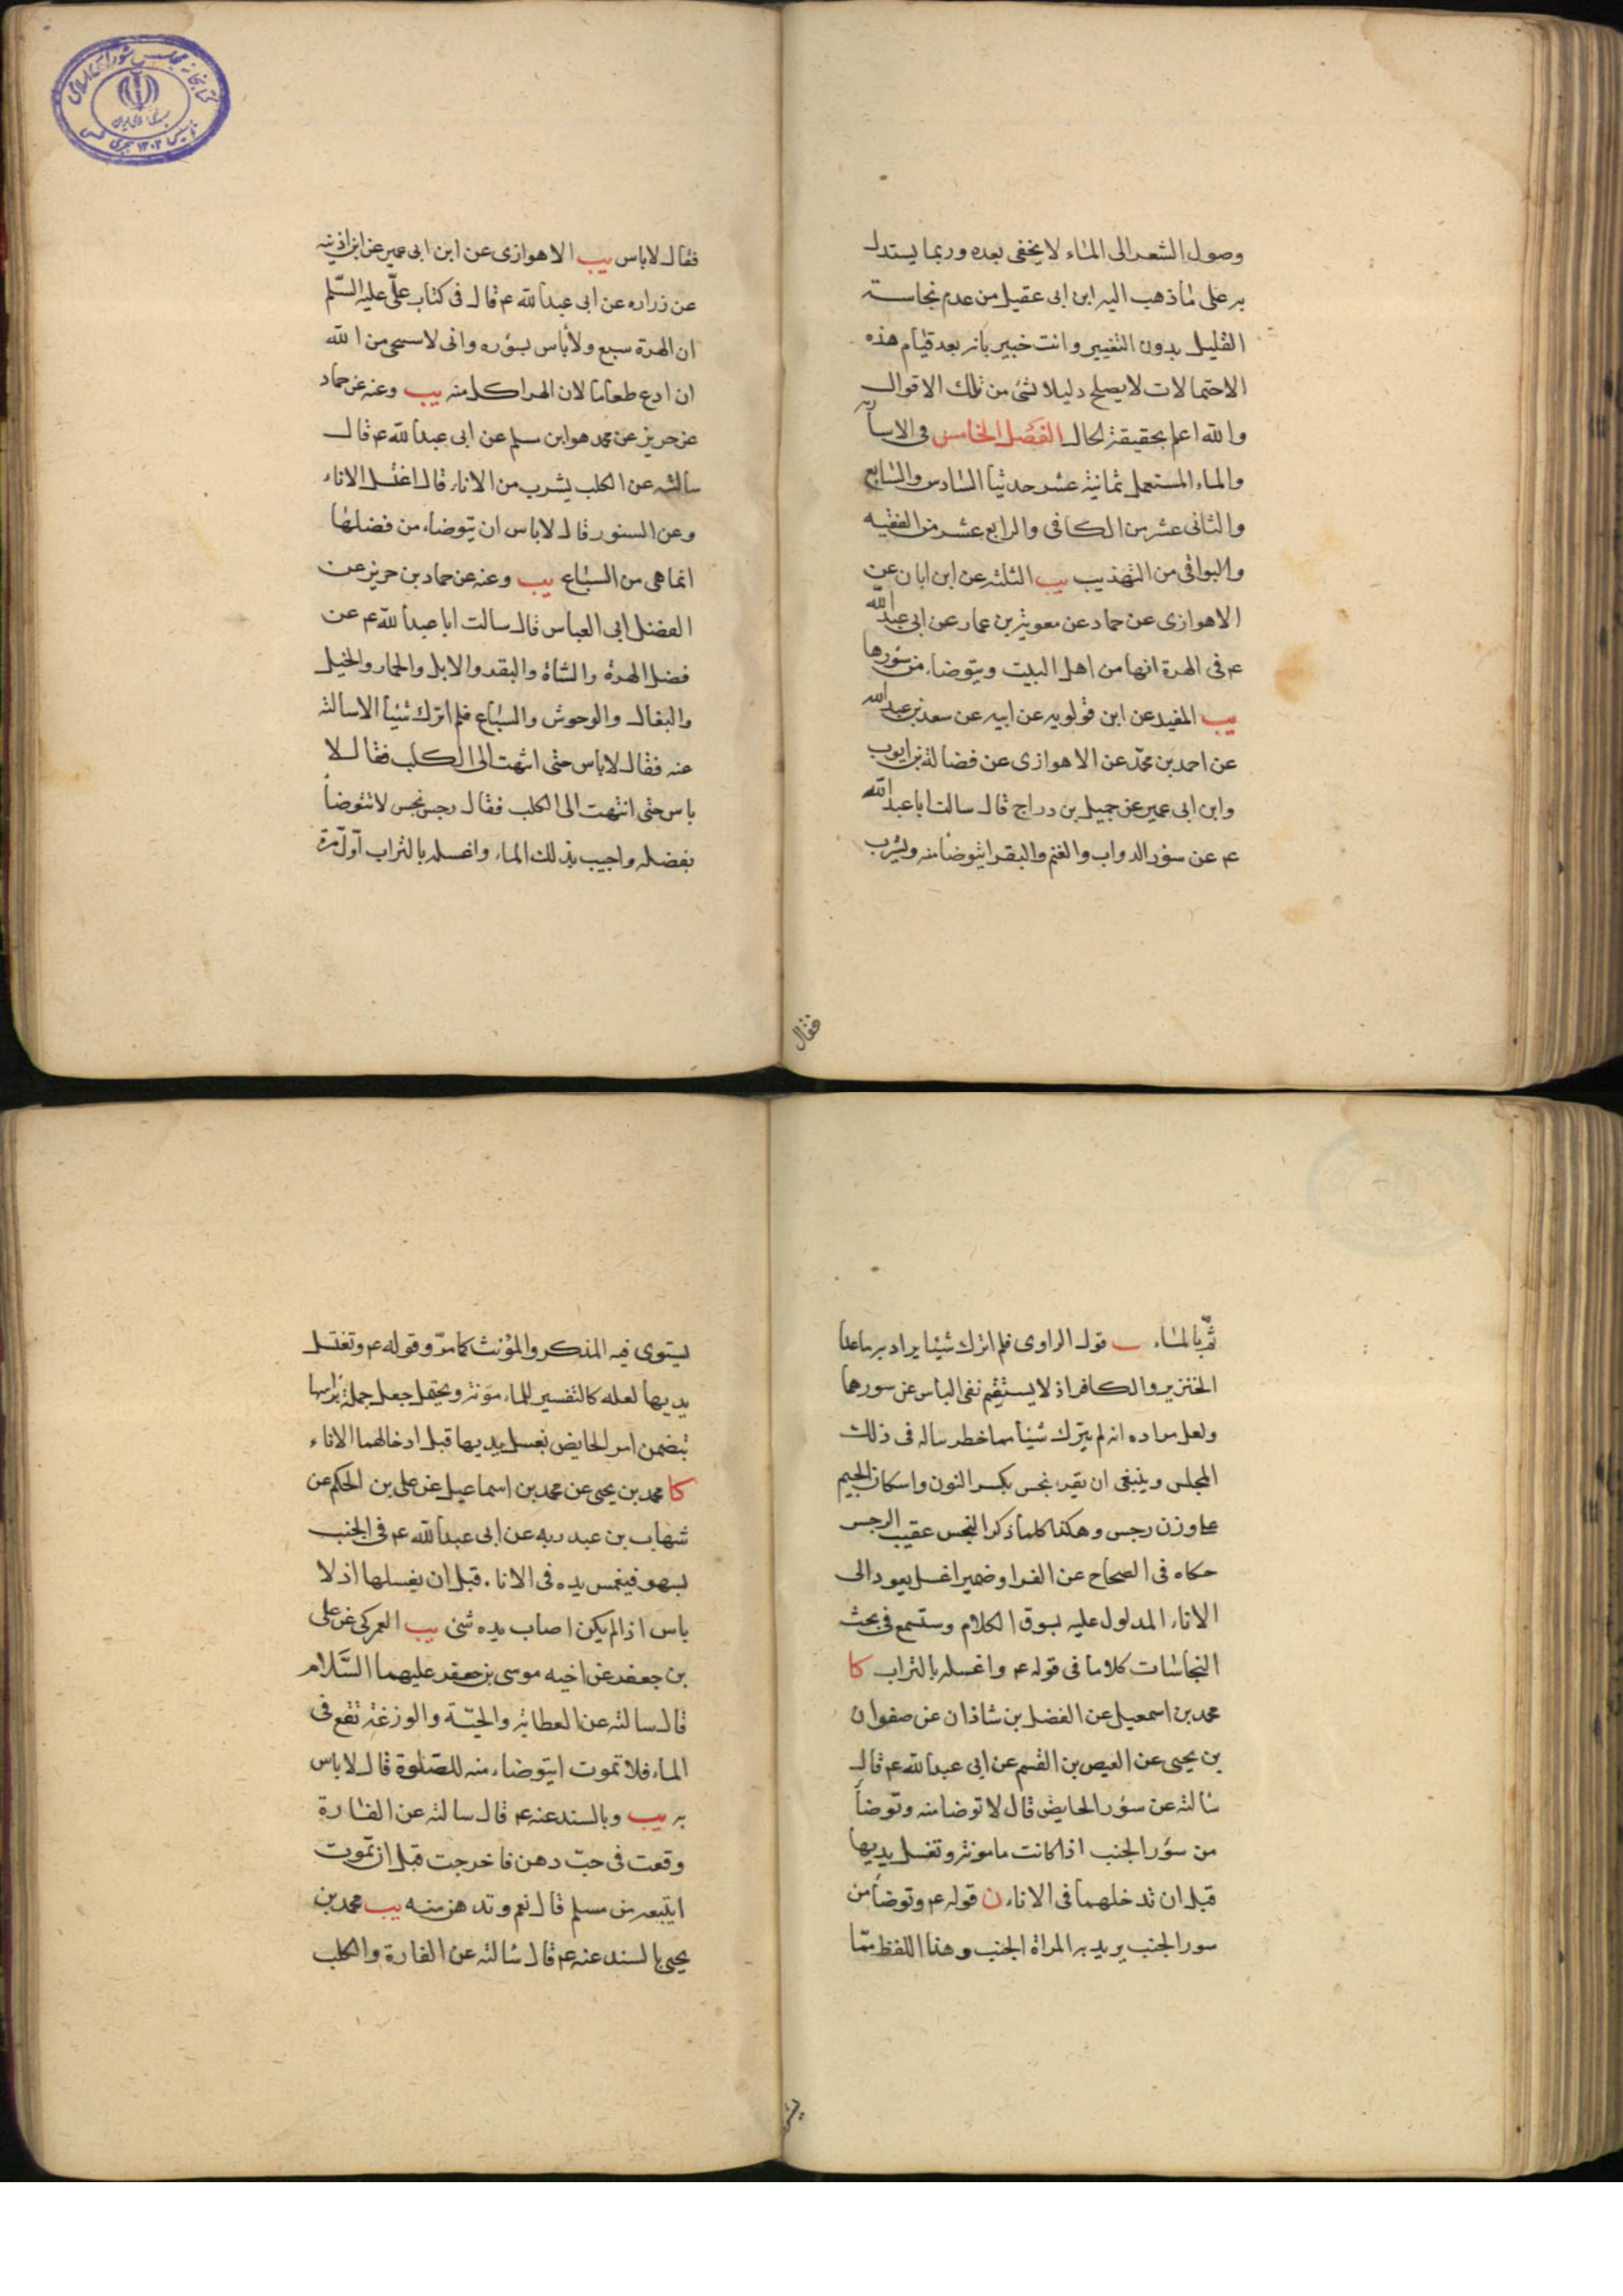 وصول الشعر الى الماء لا يخفى بعده وربما يستدل
به على ما ذهب اليه ابن ابى عقيل من عدم نجاسة
القليل بدون التغيير وانت خبير بانه بعد قيام هذه
الاحتمالات لا يصلح دليلا لشئ من تلك الاقوال
والله اعلم بحقيقة الحال الفصل الخامس فى الاسآر
والماء المستعمل ثمانية عشر حديثا السادس والسابع
والثانى عشر من الكافى والرابع عشر من الفقيه
والبواقى من التهذيب يب الثلثه عن ابن ابان عن
الاهوازى عن حماد عن معوية بن عمار عن ابى عبد الله
ع فى الهرة انها من اهل البيت ويتوضاء من سؤرها
يب المفيد عن ابن قولويه عن ابيه عن سعد بن عبد الله
عن احمد بن محمد عن الاهوازى عن فضالة بن ايوب
وابن ابى عمير عن جميل بن دراج قال سالت ابا عبد الله
ع عن سؤر الدواب والغنم والبقر ايتوضا منه ويشرب
فقال
فقال لا باس يب الاهوازى عن ابن ابى عمير عن ابن اذينه
عن زراره عن ابى عبد الله ع قال فى كتاب على عليه السلم
ان الهرة سبع ولا باس بسؤره وانى لاستحى من الله
ان ادع طعاما لان الهر اكل منه يب وعنه عن حماد
عن حريز عن محمد هو ابن مسلم عن ابى عبد الله ع قال
سالته عن الكلب يشرب من الاناء قال اغسل الاناء
وعن السنور قال لا باس ان يتوضاء من فضلها
انما هى من السباع يب وعنه عن حماد بن حريز عن
الفضل ابى العباس قال سالت ابا عبد الله ع عن
فضل الهرة والشاة والبقر والابل والحمار والخيل
والبغال والوحوش والسباع فلم اترك شيئا الا سالته
عنه فقال لا باس حتى انتهت الى الكلب فقال لا
باس حتى انتهت الى الكلب فقال رجس نجس لا تتوضأ
بفضله واصبب ذلك الماء واغسله بالتراب اول مرة
ثم بالماء ب قول الراوى فلم اترك شيئا يراد به ما عدا
الخنزير والكافر اذ لا يستقيم نفى الباس عن سورهما
ولعل مراده انه لم يترك شيئا مما خطر بباله فى ذلك
المجلس وينبغى ان يقرء نجس بكسر النون واسكان الجيم
على وزن رجس وهكذا كلما ذكر النجس عقيب الرجس
حكاه فى الصحاح عن الفرا وضمير اغسله يعود الى
الاناء المدلول عليه بسوق الكلام وستسمع فى بحث
النجاسات كلاما فى قوله ع واغسله بالتراب كا
محمد بن اسمعيل عن الفضل بن شاذان عن صفوان
بن يحيى عن العيص بن القسم عن ابى عبد الله ع قال
سالته عن سؤر الحايض قال لا توضا منه وتوضأ
من سؤر الجنب اذا كانت مامونة وتغسل يديها
قبل ان تدخلهما فى الاناء ن قوله ع وتوضأ من
سور الجنب يريد به المراة الجنب وهذا اللفظ مما
يستوى فيه المذكر والمؤنث كما مر وقوله ع وتغسل
يديها لعله كالتفسير للمامونة ويحتمل جعل جملة براسها
تتضمن امر الحايض بغسل يديها قبل ادخالهما الاناء
كا محمد بن يحيى عن محمد بن اسماعيل عن على بن الحكم عن
شهاب بن عبد ربه عن ابى عبد الله ع فى الجنب
يسهو فيغمس يده فى الاناء قبل ان يغسلها اذ لا
باس اذا لم يكن اصاب يده شئ يب العمركى عن على
بن جعفر عن اخيه موسى بن جعفر عليهما السلام
قال سالته عن العظاية والحية والوزغة تقع فى
الماء فلا تموت ايتوضاء منه للصلوة قال لا باس
به يب وبالسند عنه ع قال سالته عن الفارة
وقعت فى حب دهن فاخرجت قبل ان تموت
ايبيعه من مسلم قال نعم وتدهن منه يب محمد بن
يحيى بالسند عنه ع قال سالته عن الفارة والكلب